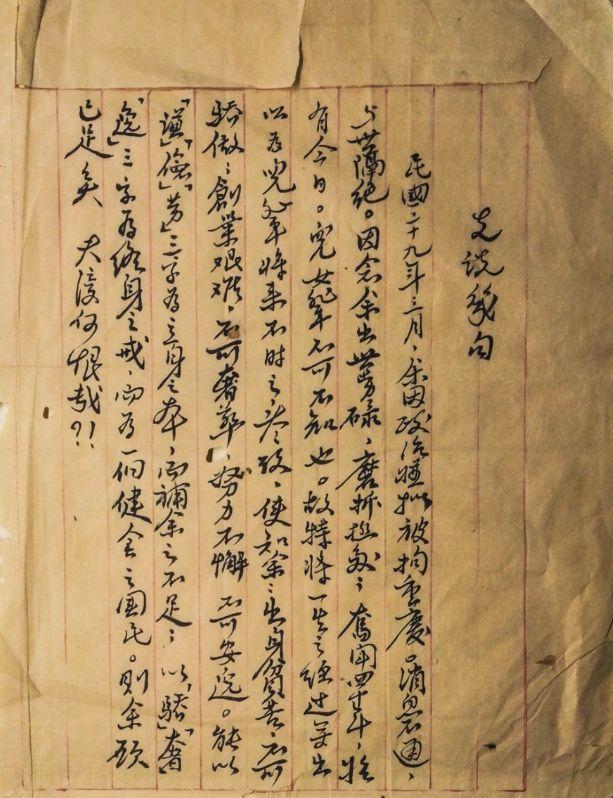 先談幾句
民國二十九年三月，余因政治嫌拟被拘重慶。消息不通，
与世隔絶。因念余出世劳碌，磨折極多；奮闘四十年，始
有今日。兒女輩不可不知也。故特將一生之經过写出
以為兒輩將来不时之参攷，使知余之出身貧苦，不可
驕傲；創業艰难，不可奢華；努力不懈，不可安逸。能以
「謙」「儉」「劳」三字為立身之本，而補余之不足；以「驕」「奢」
「逸」三字為終身之戒，而為一個健全之國民。則余願
已足矣 夫復何恨哉？！